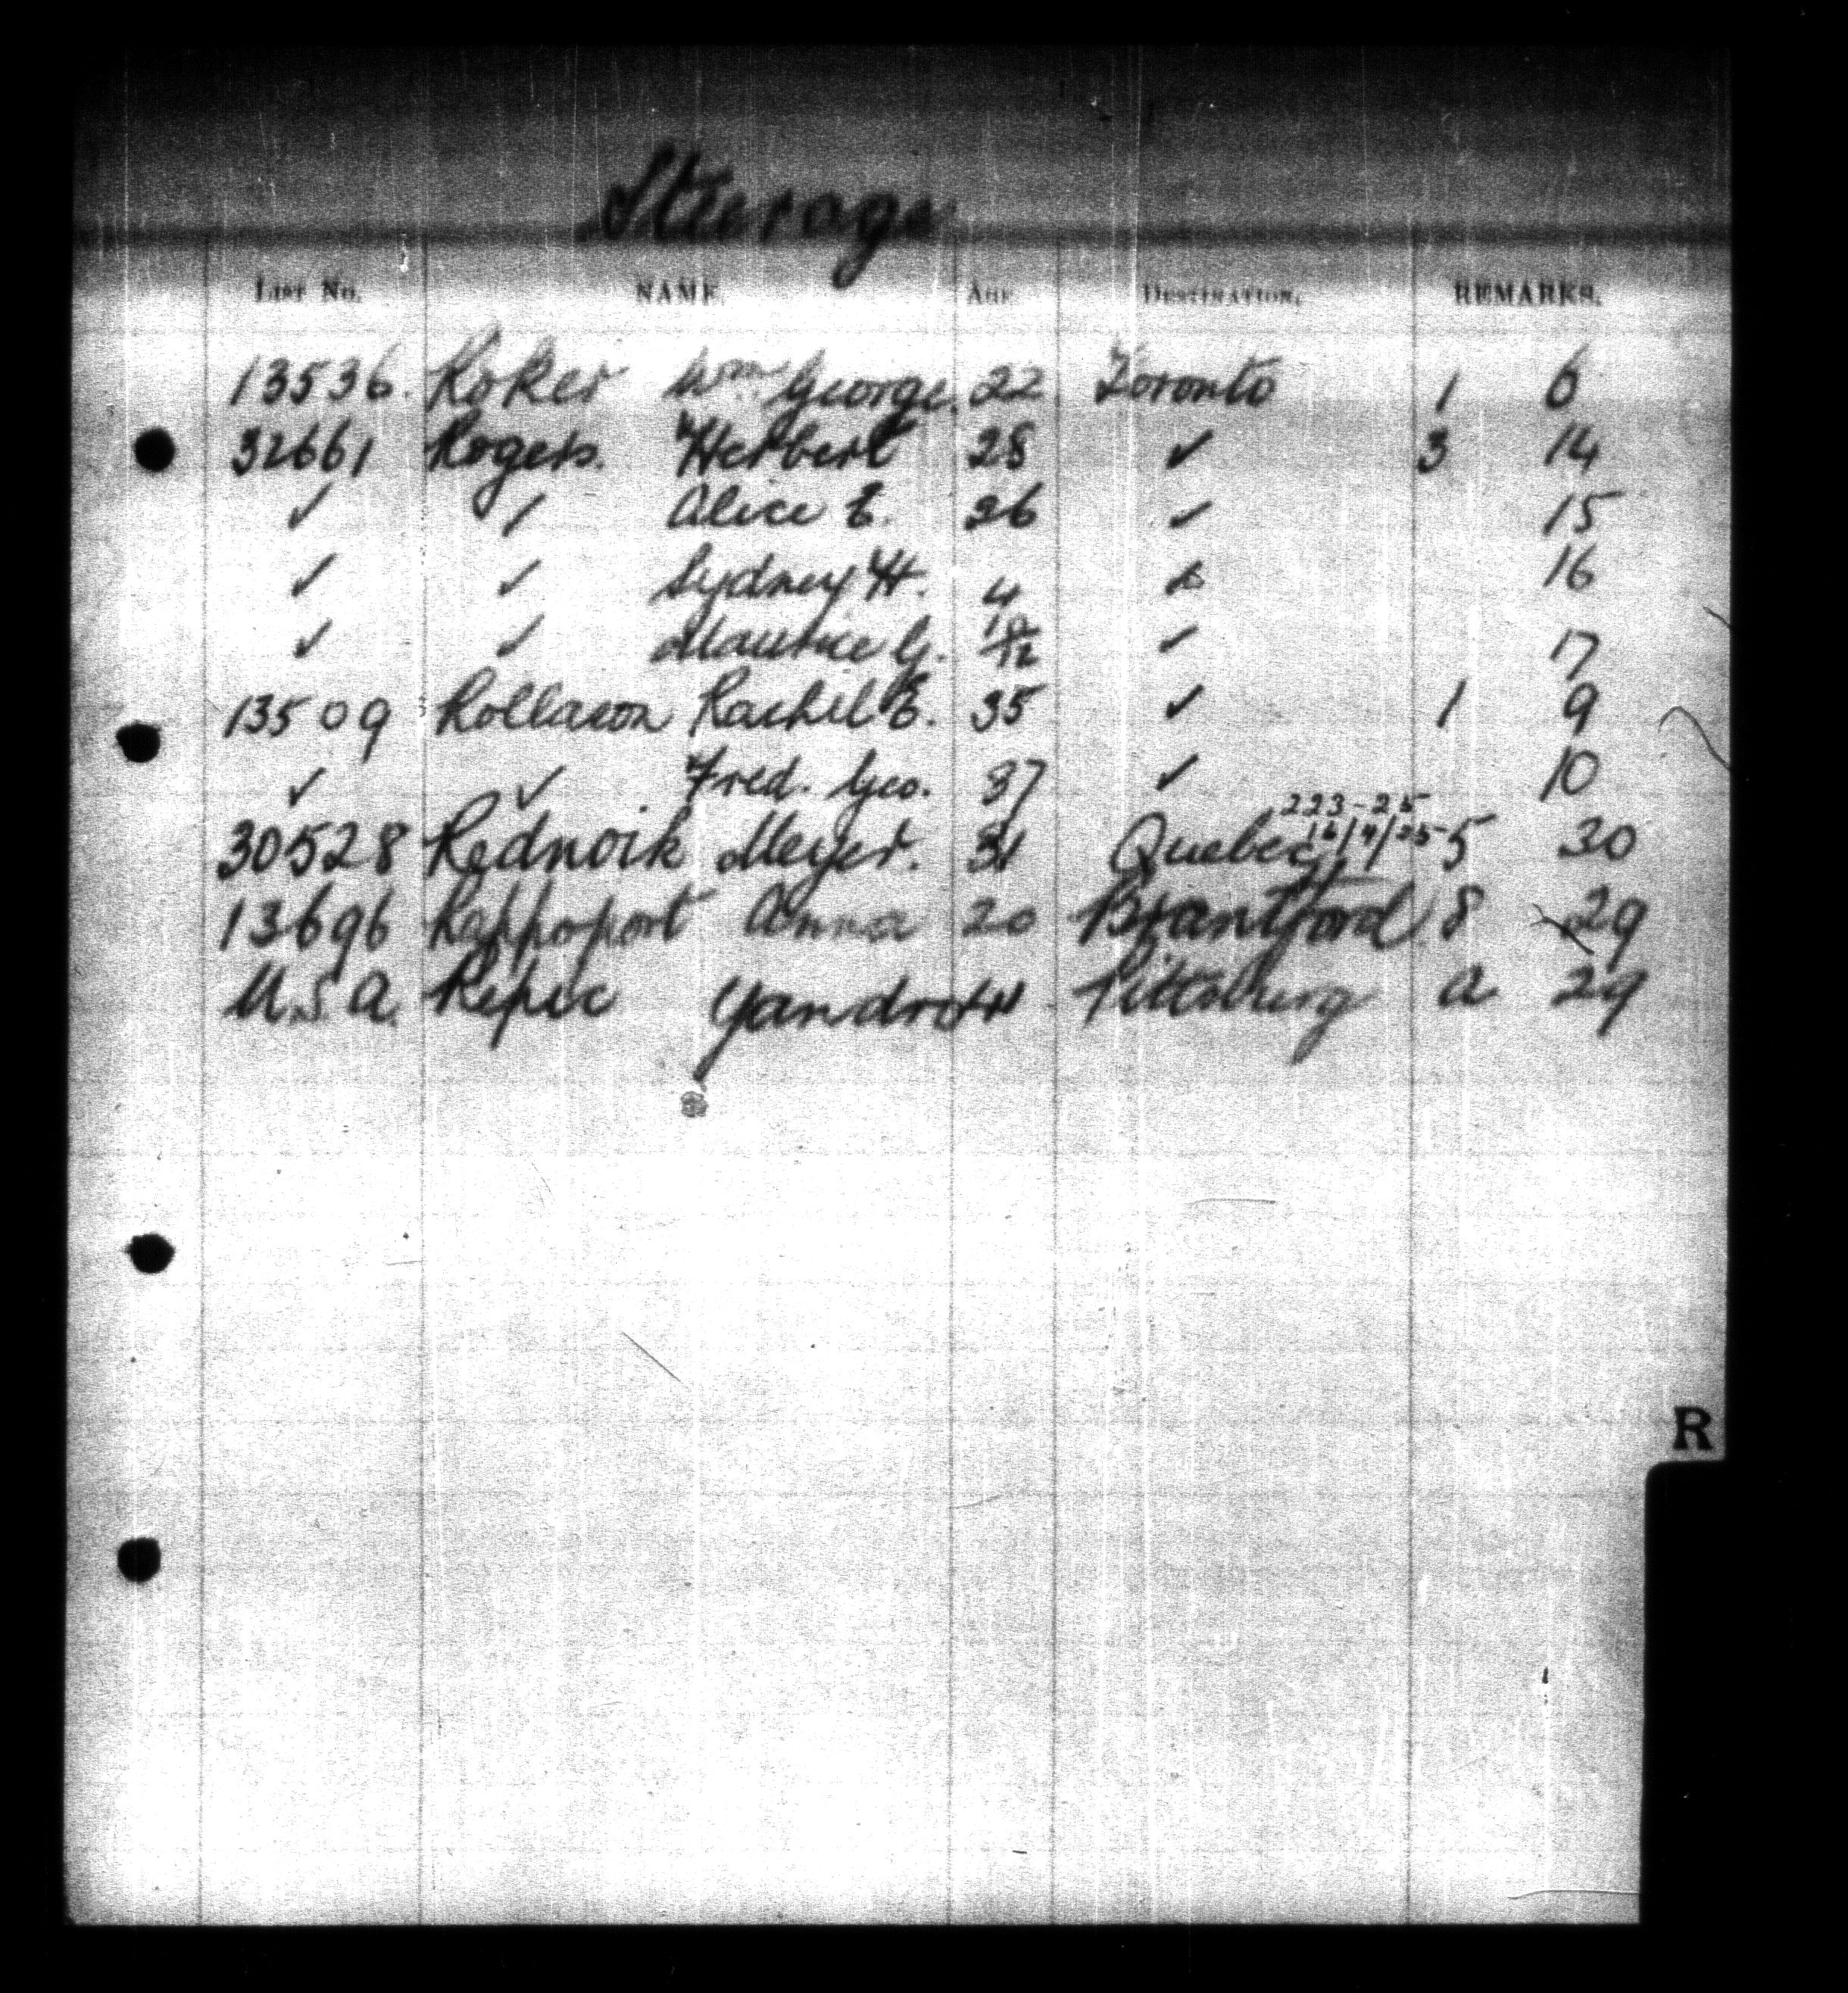 Steerage
LIST NO. NAME. AGE DESTINATION. REMARKS.
13536. Roker Wm George. 22 Toronto 1 6
32661 Rogers. Herbert 28 ✓ 3 14
✓ ✓ Alice E. 26 ✓ 15
✓ ✓ Sydney H. 4 ✓ 16
✓ ✓ Maurice G. 10/12 ✓ 17
13509 Rollason Rachel E. 35 ✓ 1 9
✓ ✓ Fred. Geo. 37 ✓ 10
223-25
30528 Rednoik Meyer. 31 Quebec 16/4/25 5 30
13696 Rappoport Anna 20 Brantford 8 29
U.S.A. Repec Yandro 44 Pittsburg a 29
R